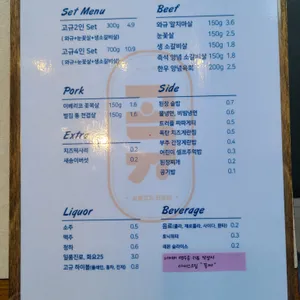 Set Menu
고규2인 Set 300g 4.9
(와규+눈꽃살+생소갈비살)
고규4인 Set 700g 10.9
(와규+눈꽃살+생소갈비살)
Beef
와규 알치마살 150g 3.6
눈꽃살 150g 2.5
생 소갈비살 150g 2.5
즉석 양념 소갈비살 150g 2.6
한우 양념육회 200g 2.5
Pork
이베리코 꽃목살 150g 1.8
150g 1.8
Extra
치즈퐁듀 0.2
새송이버섯 0.2
Side
된장 술밥 0.7
물냉면, 비빔냉면 0.6
트러플 짜파게티 0.6
육탄 치즈계란찜 0.5
부추 간장계란밥 0.4
어린이 0.4
된장찌개 0.2
공기밥 0.1
Liquor
소주 0.5
맥주 0.5
청하 0.6
일품진로, 화요25 3.0
고규 하이볼 0.8
Beverage
음료(콜라, 제로콜라, 사이다, 환타) 0.2
0.3
0.2